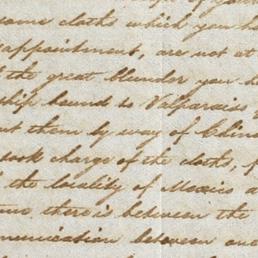 same cloths which you h
appointment, are not at
the great blunder you h
ship bound to Valparaiso
them by way of
took charge of the cloths,
the locality of Mexico a
there is between the
munication between